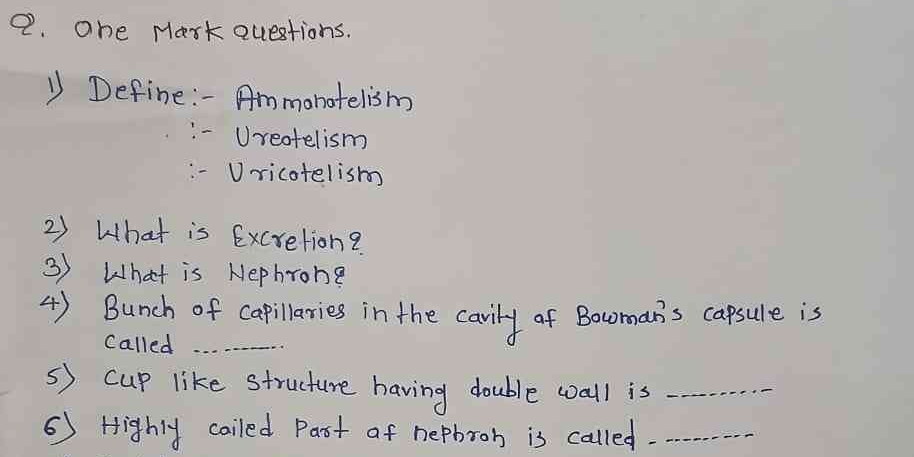 Q. One Mark Questions.
1) Define:- Ammonotelism
:- Ureotelism
:- Uricotelism
2) What is Excretion?
3) What is Nephron?
4) Bunch of capillaries in the cavity of Bowman's capsule is
called ----------
5) Cup like structure having double wall is ----------
6) Highly coiled Part of nephron is called ----------